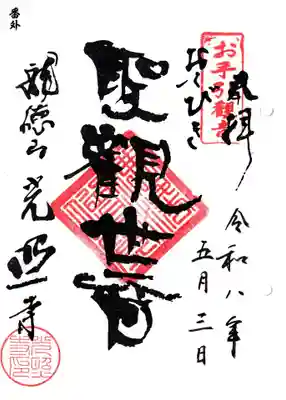 奉拝
令和八年
五月三日
お手引観音
おてびき
聖観世音
龍徳山 光照寺
番外